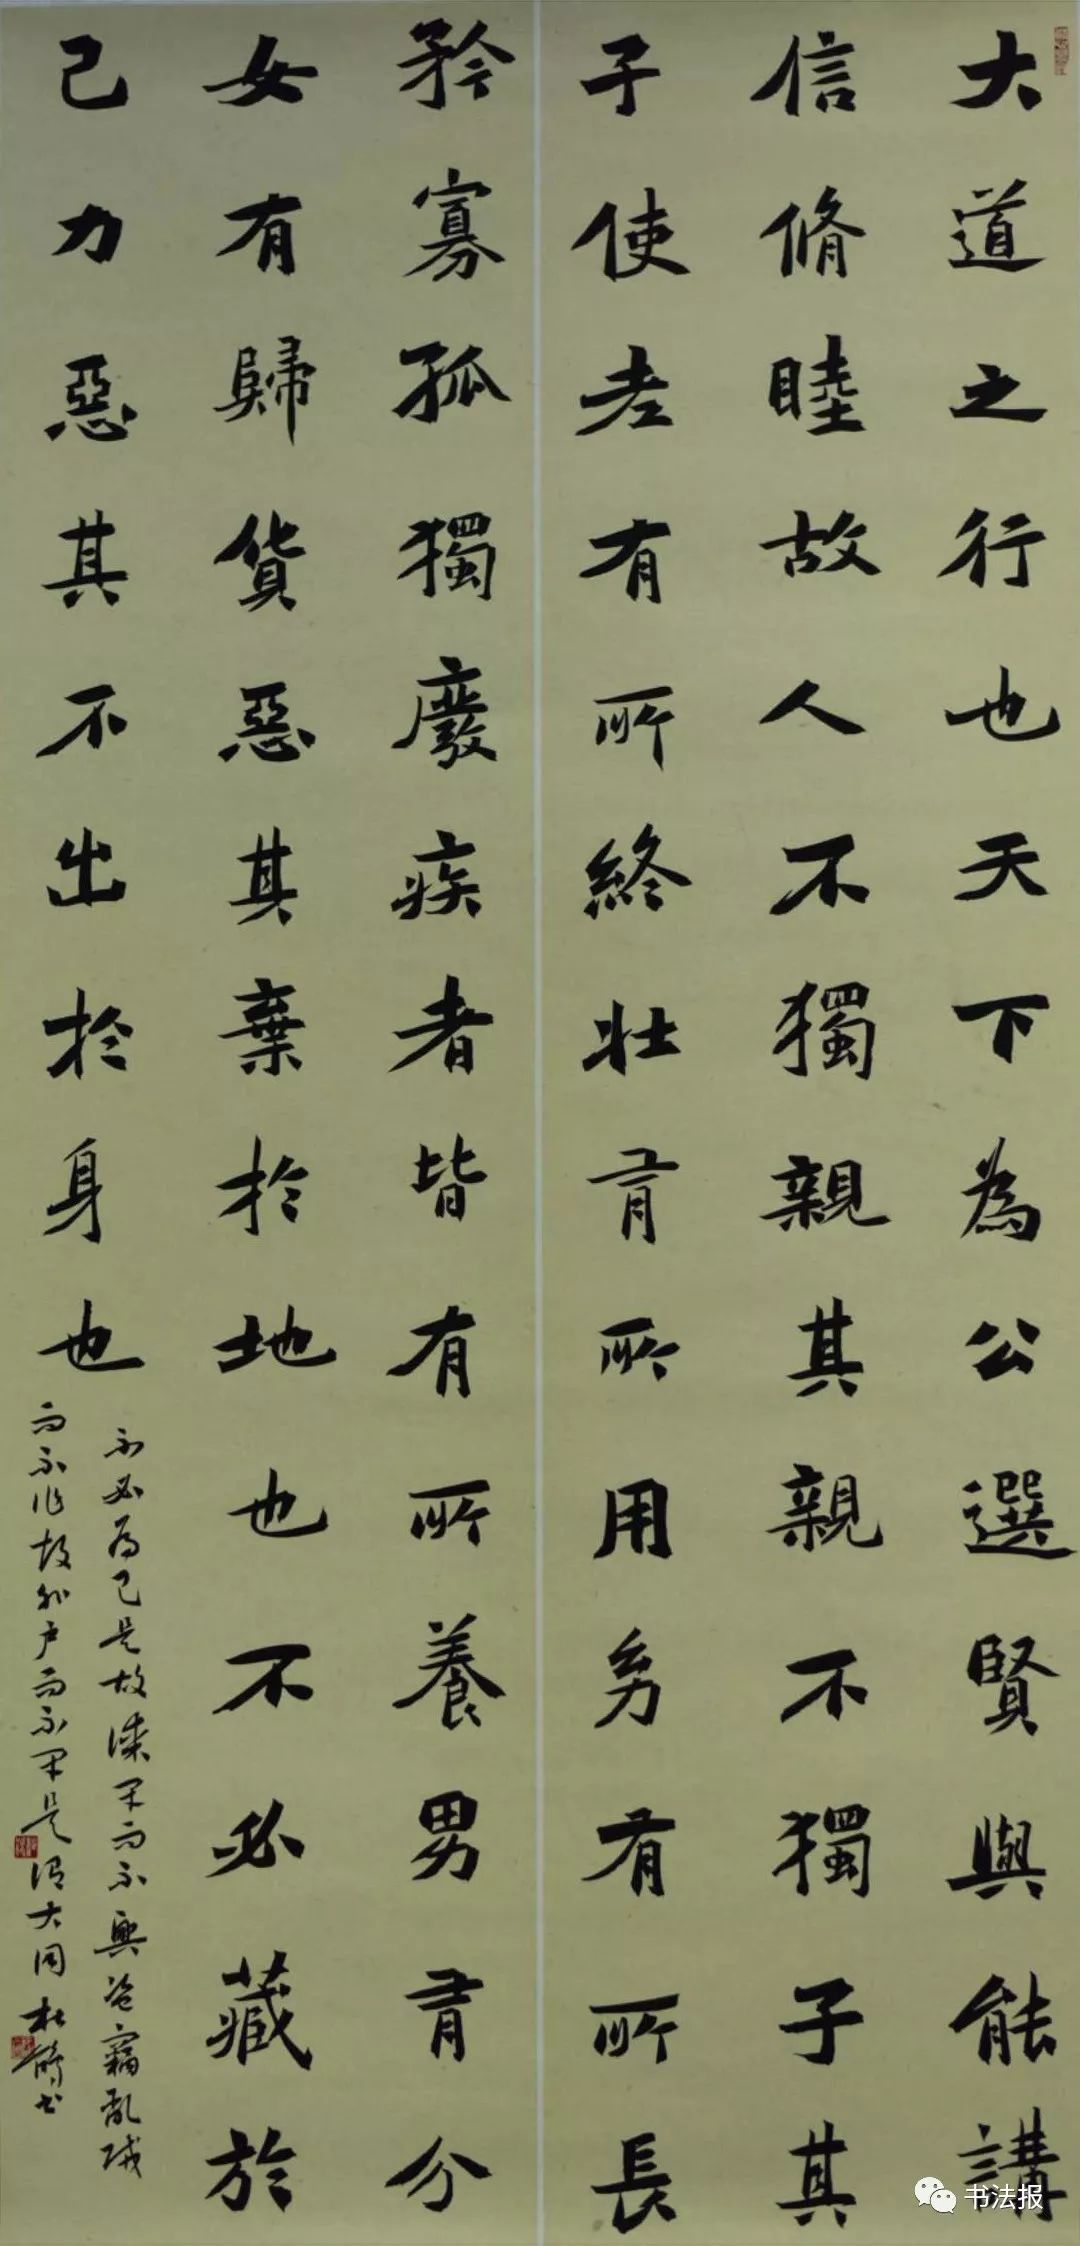 大道之行也天下為公選賢與能講
信脩睦故人不獨親其親不獨子其
子使老有所終壯有所用幼有所長
矜寡孤獨廢疾者皆有所養男有分
女有歸貨惡其棄於地也不必藏於
己力惡其不出於身也
不必為己是故謀閉而不興盜竊亂賊
而不作故外戶而不閉是謂大同 杜书
书法报